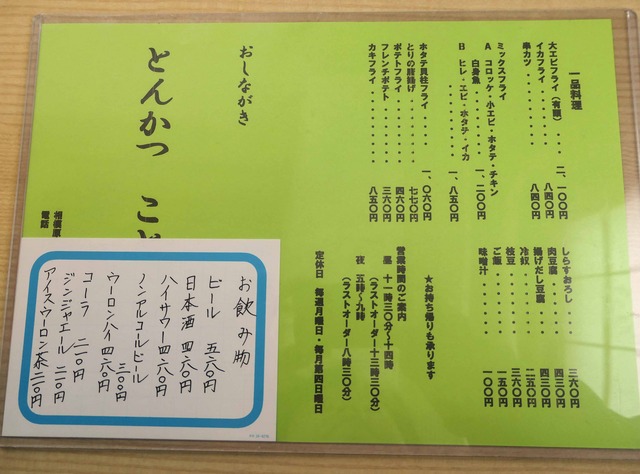 一品料理
大エビフライ（有頭）・・・二、一〇〇円
イカフライ・・・・・・・・・・八四〇円
串カツ・・・・・・・・・・・・八四〇円
ミックスフライ
A コロッケ・小エビ・ホタテ・チキン
白身魚・・・・・・・・一、二〇〇円
B ヒレ・エビ・ホタテ・イカ
・・・・・・・・一、八五〇円
ホタテ貝柱フライ・・・・一、〇六〇円
とりの唐揚げ・・・・・・・・七七〇円
ポテトフライ・・・・・・・・四六〇円
フレンチポテト・・・・・・・三六〇円
カキフライ・・・・・・・・・八五〇円
しらすおろし・・・・・三六〇円
肉豆腐・・・・・・・・四三〇円
揚げだし豆腐・・・・・四三〇円
冷奴・・・・・・・・・二五〇円
枝豆・・・・・・・・・三六〇円
ご飯・・・・・・・・・一五〇円
味噌汁・・・・・・・・一〇〇円
★お持ち帰りも承ります
営業時間のご案内
昼 十一時三〇分〜十四時
（ラストオーダー十三時三〇分）
夜 五時〜九時
（ラストオーダー八時三〇分）
定休日 毎週月曜日・毎月第四日曜日
おしながき
とんかつ こと
相模原
電話
お飲み物
ビール 五六〇円
日本酒 四六〇円
ハイサワー 四六〇円
ノンアルコールビール
三〇〇円
ウーロンハイ 四六〇円
コーラ 二一〇円
ジンジャエール 二一〇円
アイスウーロン茶 二一〇円